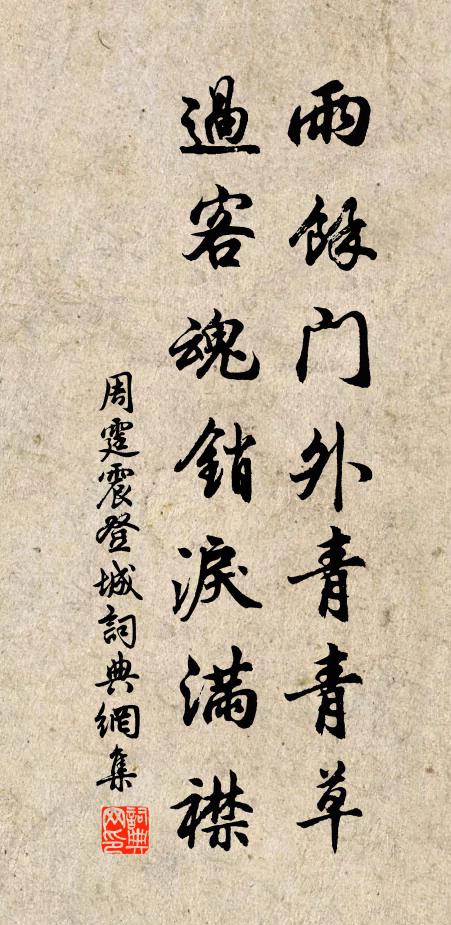 雨餘门外青青草
過客魂銷淚滿襟
周霆震登城詞典網集
詞典
网印